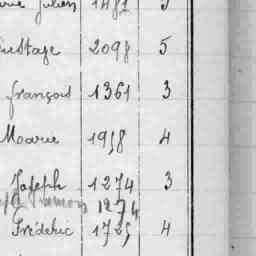 Julien 1481
Eustage 2098 5
françois 1361 3
Moarie 1958 4
Joseph 1274 3
1274
Frédéric 1725 4